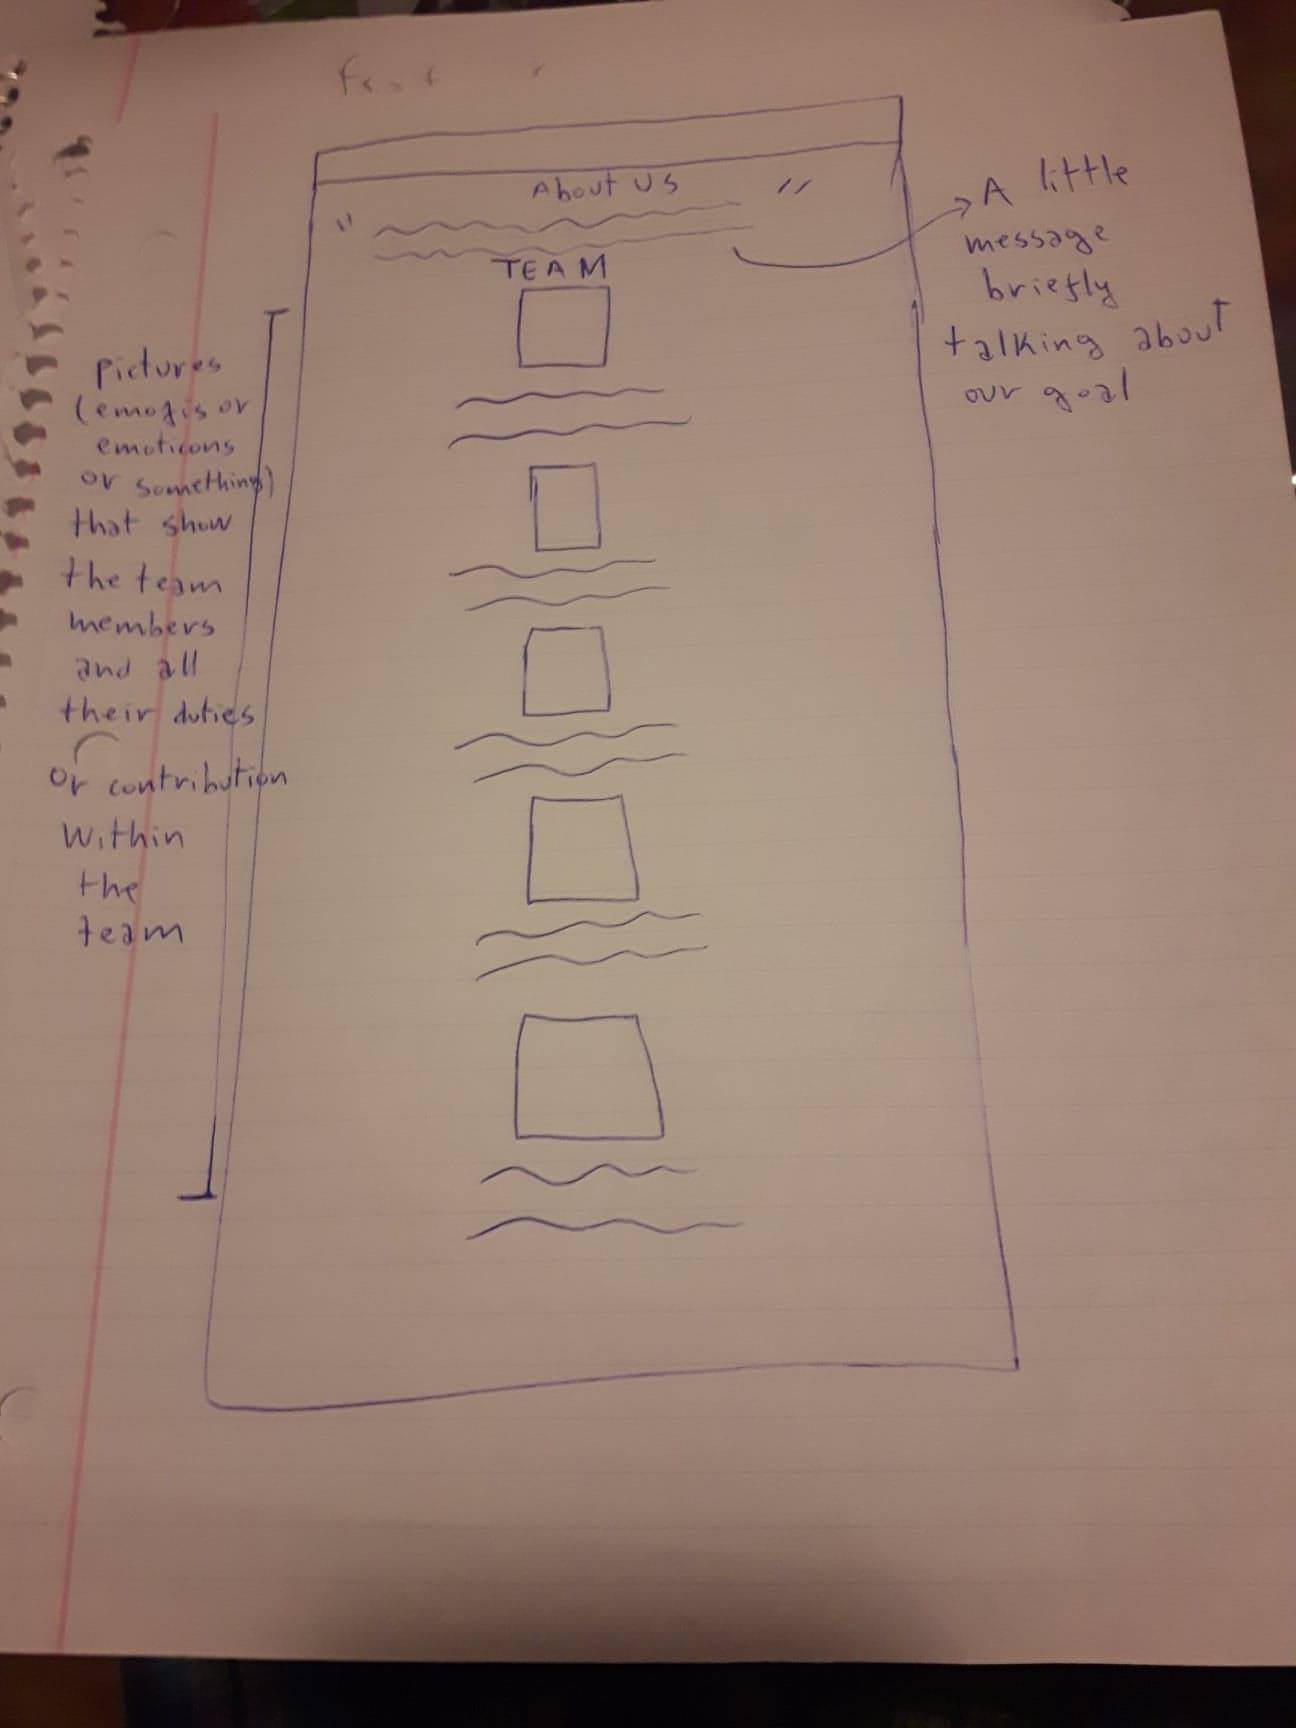 About US
"
"
TEAM
A little
message
briefly
talking about
our goal
pictures
(emojis or
emoticons
or something)
that show
the team
members
and all
their duties
or contribution
Within
the
team